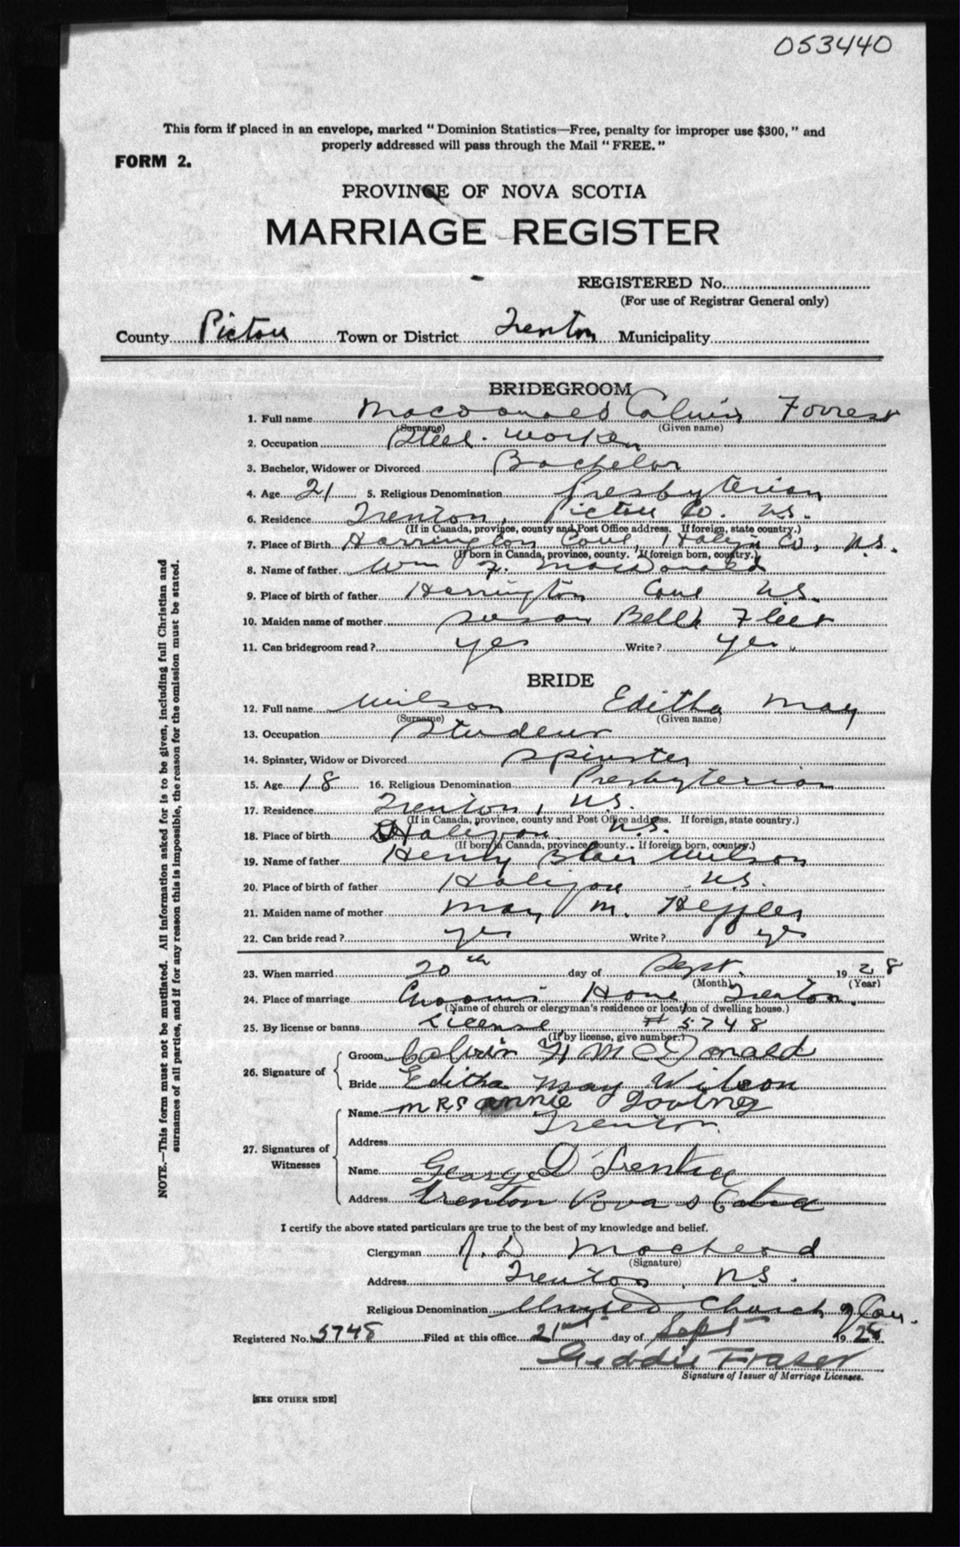 053440
This form if placed in an envelope, marked "Dominion Statistics—Free, penalty for improper use $300," and
properly addressed will pass through the Mail "FREE."
FORM 2.
PROVINCE OF NOVA SCOTIA
MARRIAGE REGISTER
REGISTERED No.
(For use of Registrar General only)
County Pictou Town or District Trenton Municipality
BRIDEGROOM
1. Full name Macdonald Calvin Forrest
(Surname) (Given name)
2. Occupation Steel-worker
3. Bachelor, Widower or Divorced Bachelor
4. Age 21 5. Religious Denomination Presbyterian
6. Residence Trenton, Pictou Co. N.S.
(If in Canada, province, county and Post Office address. If foreign, state country.)
7. Place of Birth Harrington Cove, Halifx Co, N.S.
(If born in Canada, province, county. If foreign born, country.)
8. Name of father Wm F. MacDonald
9. Place of birth of father Harrington Cove N.S.
10. Maiden name of mother Susan Bell Fleet
11. Can bridegroom read? yes Write? yes
BRIDE
12. Full name Wilson Editha May
(Surname) (Given name)
13. Occupation Student
14. Spinster, Widow or Divorced Spinster
15. Age 18 16. Religious Denomination Presbyterian
17. Residence Trenton, N.S.
(If in Canada, province, county and Post Office address. If foreign, state country.)
18. Place of birth Halifax N.S.
(If born in Canada, province county. If foreign born, country.)
19. Name of father Henry Blair Wilson
20. Place of birth of father Halifax N.S.
21. Maiden name of mother May M. Heffler
22. Can bride read? yes Write? yes
23. When married 20th day of Sept. 1928
(Month) (Year)
24. Place of marriage Groom's Home Trenton.
(Name of church or clergyman's residence or location of dwelling house.)
25. By license or banns License # 5748
(If by license, give number.)
26. Signature of
Groom Calvin F McDonald
Bride Editha May Wilson
27. Signatures of Witnesses
Name Mrs Annie
Address Trenton
Name George D
Address Trenton Nova Scotia
I certify the above stated particulars are true to the best of my knowledge and belief.
Clergyman MacLeod
(Signature)
Address Trenton, N.S.
Religious Denomination United Church of Can.
Registered No. 5748 Filed at this office 21st day of Sept 1928
Geddie Fraser
Signature of Issuer of Marriage Licenses.
[SEE OTHER SIDE]
NOTE.—This form must not be mutilated. All information asked for is to be given, including full Christian and
surnames of all parties, and if for any reason this is impossible, the reason for the omission must be stated.